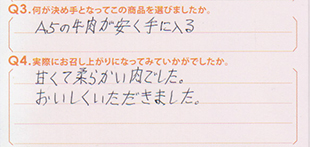 Q3.何が決め手となってこの商品を選びましたか。
A5の牛肉が安く手に入る
Q4.実際にお召し上がりになってみていかがでしたか。
甘くて柔らかい肉でした。
おいしくいただきました。